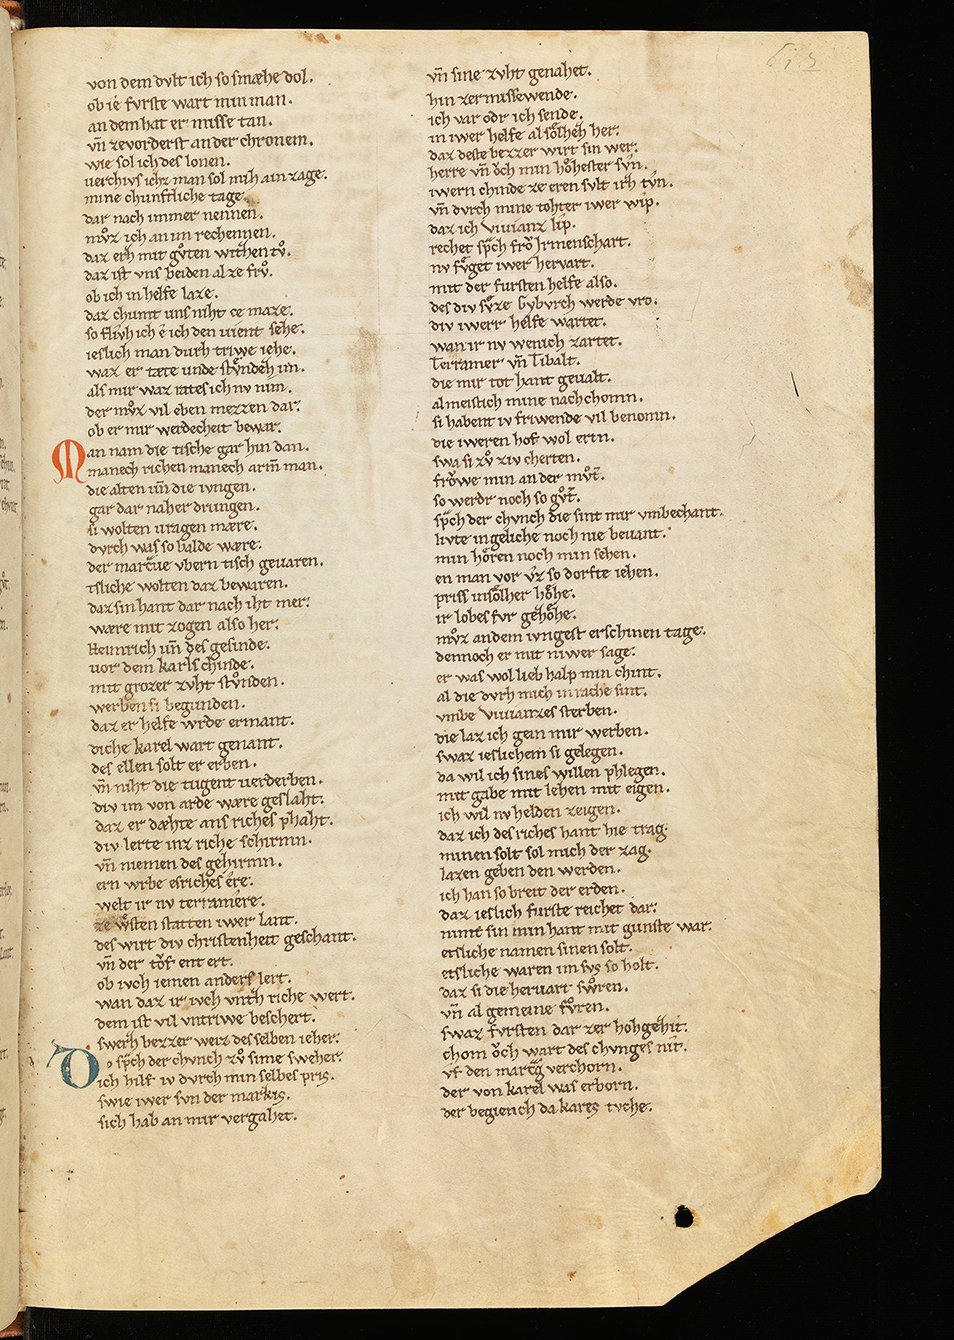 von dem dvlt ich so smæhe dol.
ob ie fvrste wart min man.
an dem hat er misse tan.
vn̄ zevorderst an der chronein.
wie sol ich des lonen.
verchivs ichz man sol mih ain zage.
mine chunftliche tage.
dar nach immer nennen.
mv̊z ich an im rechennen.
daz erh mit gv̊ten withen tv̊.
daz ist vns beiden al ze frv̊.
ob ich in helfe laze.
daz chumt uns niht ce maze.
so flivh ich é ich den vient sehe.
ieslich man durh triwe iehe.
waz er tæte unde stv̊ndeh im.
als mir waz rates ich nv nim.
der mv̊z vil eben mezzen dar.
ob er mir werdecheit bewar.
Man nam die tische gar hin dan.
manech richen manech arm̄ man.
die alten vn̄ die ivngen.
gar dar naher drungen.
si wolten vragen mære.
dvrch was so balde wære.
der marc̄ue vbern tisch gevaren.
tsliche wolten daz bewaren.
daz sin hant dar nach iht mer.
wære mit zogen also her.
Heimrich vn̄ des gesinde.
vor dem karls chinde.
mit grozer zvht stv̊nden.
werben si begunden.
daz er helfe wrde ermant.
diche karel wart genant.
des ellen solt er erben.
vn̄ niht die tugent verderben.
div im von arde wære geslaht.
daz er dæhte ans riches phaht.
div lerte inz riche schirmn.
vn̄ niemen des gehirmn.
ern wrbe esriches ére.
welt ir nv terramére.
ze wv̊sten statten iwer lant.
des wirt div christenheit geschant.
vn̄ der tǒf ent ert.
ob ivch iemen anders lert.
wan daz ir ivch vnth riche wert.
dem ist vil vntriwe beschert.
swerh bezzer werz des selben ieher.
Do sp̄ch der chvnch zv̊ sime sweher.
ich hilf iv dvrch min selbes pris.
swie iwer svn der markis.
sich hab an mir vergahet.
vn̄ sine zvht genahet.
hin zer missewende.
ich var odr ich sende.
in iwer helfe al sǒlheh her.
daz deste bezzer wirt sin wer.
herre vn̄ ǒch min hǒhester svn.
iwern chinde ze eren svlt irh tvn.
vn̄ dvrch mine tohter iwer wip.
daz ich vivianz lip.
rechet sp̄ch frǒ Irmenschart.
nv fv̊get iwer hervart.
mit der fursten helfe also.
des div sv̊ze Gybvrch werde vro.
div iwerr helfe wartet.
wan ir nv wenich zartet.
Terramer vn̄ Tibalt.
die mir tot hant gevalt.
almeistich mine nachchomn.
si habent iv friwende vil benomn.
die iweren hof wol ertn.
swa si zv̊ ziv cherten.
frǒwe min an der mv̊t̄.
so werdr noch so gv̊t̄.
sp̄ch der chvnch die sint mir vmbechant.
livte ingeliche noch nie bevant.
min hǒren noch min sehen.
en man vor v̊z so dorfte iehen.
priss insǒlher hǒhe.
ir lobes fvr gehǒhe.
mv̊z andem ivngest erschinen tage.
dennoch er mit niwer sage.
er was wol lieb halp min chint.
al die dvrh mich in rache sint.
vmbe vivianzes sterben.
die laz ich gein mir werben.
swaz ieslichem si gelegen.
da wil ich sines willen phlegen.
mit gabe mit lehen mit eigen.
ich wil nv helden zeigen.
daz ich des riches hant hie trag.
minen solt sol mich der zag.
lazen geben den werden.
ich han so breit der erden.
daz ieslich furste reichet dar.
nimt sin min hant mit gunste war.
etsliche namen sinen solt.
etsliche waren im svs so holt.
daz si die hervart swv̊ren.
vn̄ al gemeine fv̊ren.
swaz fvrsten dar zer hohgehit.
chom ǒch wart des chvnges nir.
vf den marc̄g verchorn.
der von karel was erborn.
der begiench da kares tvche.